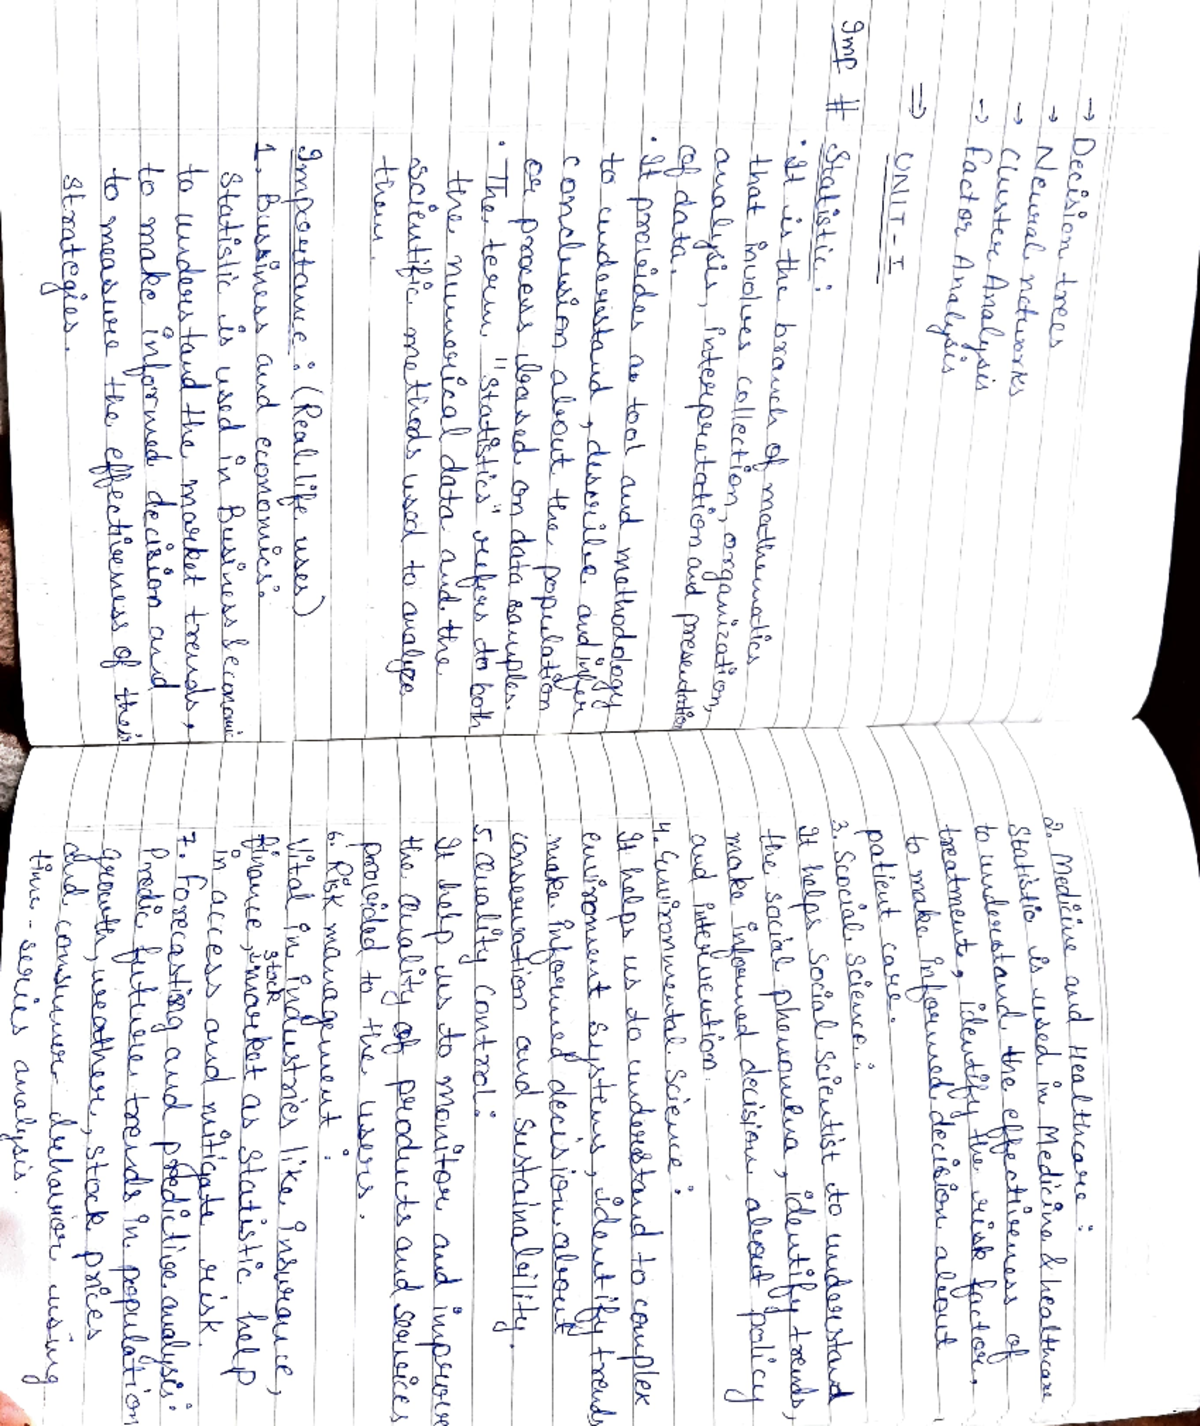 → Decision trees
→ Neural networks
→ Cluster Analysis
→ Factor Analysis
⇒ UNIT - I
Imp # Statistic :
· It is the branch of mathematics
that involves collection, organization,
analysis, interpretation and presentation
of data.
· It provides a tool and methodology
to understand, describe and infer
conclusion about the population
or process based on data samples.
· The term "statistics" refers to both
the numerical data and the
scientific methods used to analyze
them.
Importance : (Real life uses)
1. Business and economics :
Statistic is used in Business & economic
to understand the market trends,
to make informed decision and
to measure the effectiveness of their
strategies.
2. Medicine and Healthcare :
Statistic is used in Medicine & healthcare
to understand the effectiveness of
treatment, identify the risk factor,
to make informed decision about
patient care.
3. Social Science :
It helps social scientist to understand
the social phenomena, identify trends,
make informed decision about policy
and intervention.
4. Environmental Science :
It helps us to understand to complex
environment systems, identify trends
make informed decision about
conservation and sustainability.
5. Quality control :
It help us to monitor and improve
the quality of products and services
provided to the users.
6. Risk management :
Vital in industries like insurance,
finance, stock market as statistic help
in access and mitigate risk.
7. Forecasting and predictive analysis :
Predic future trends in population
growth, weather, stock prices
and consumer behavior using
time - series analysis.